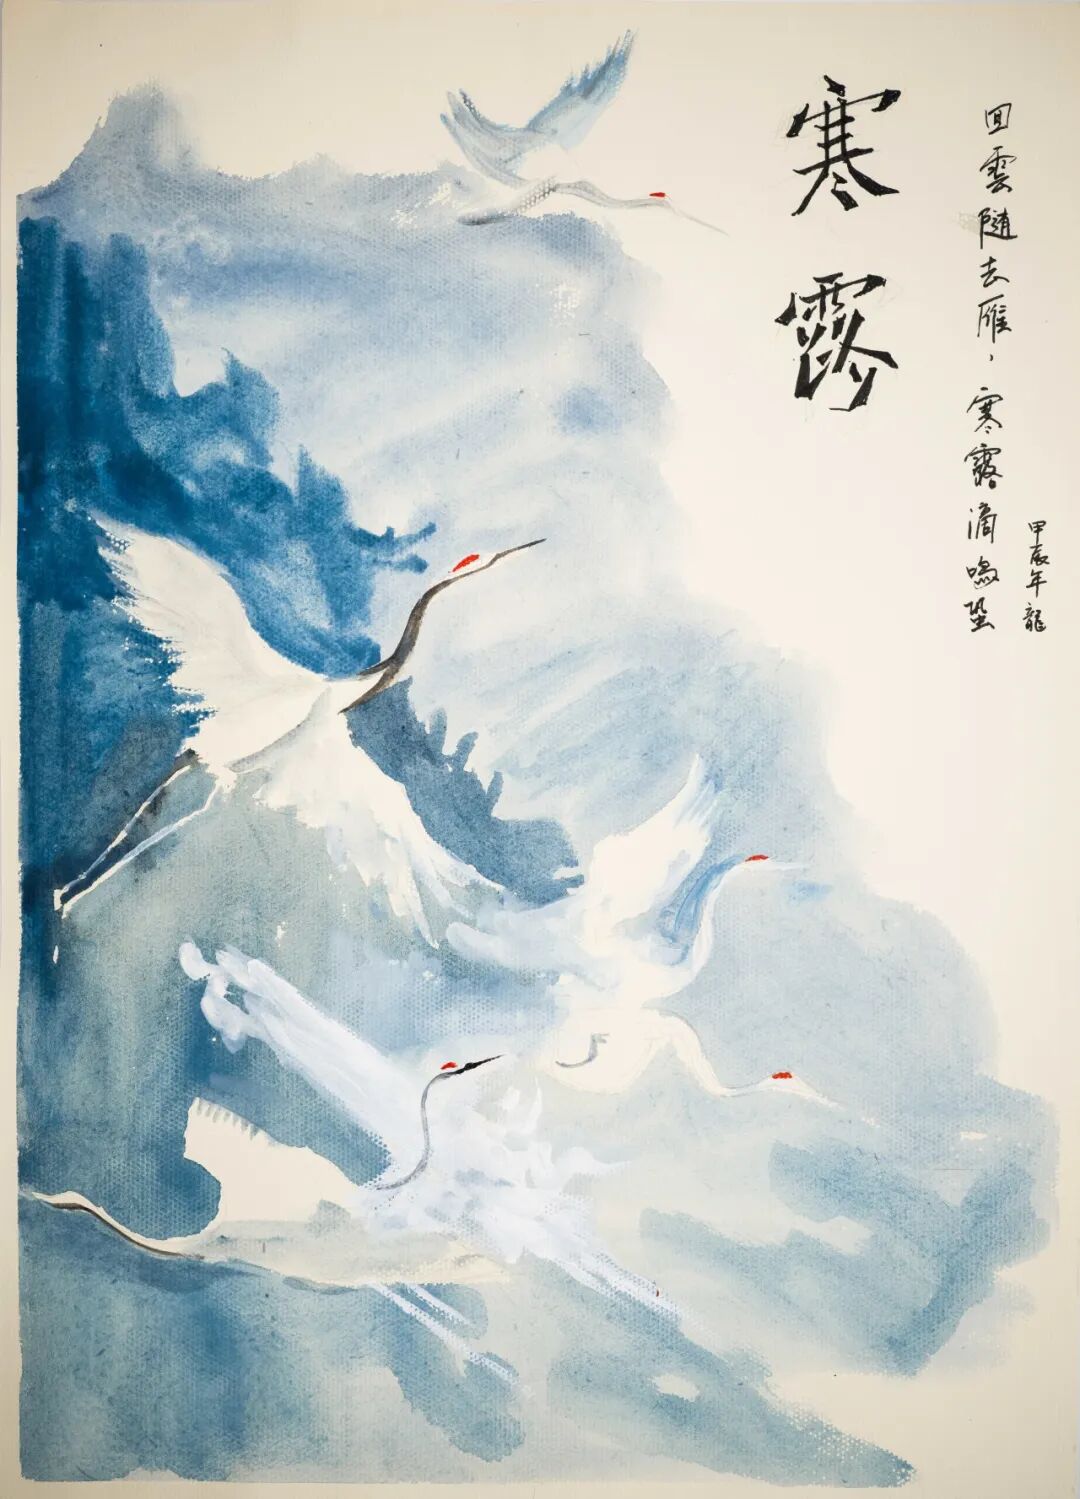 寒露
回雲随去雁，寒露滴鳴蛩
甲辰年龍